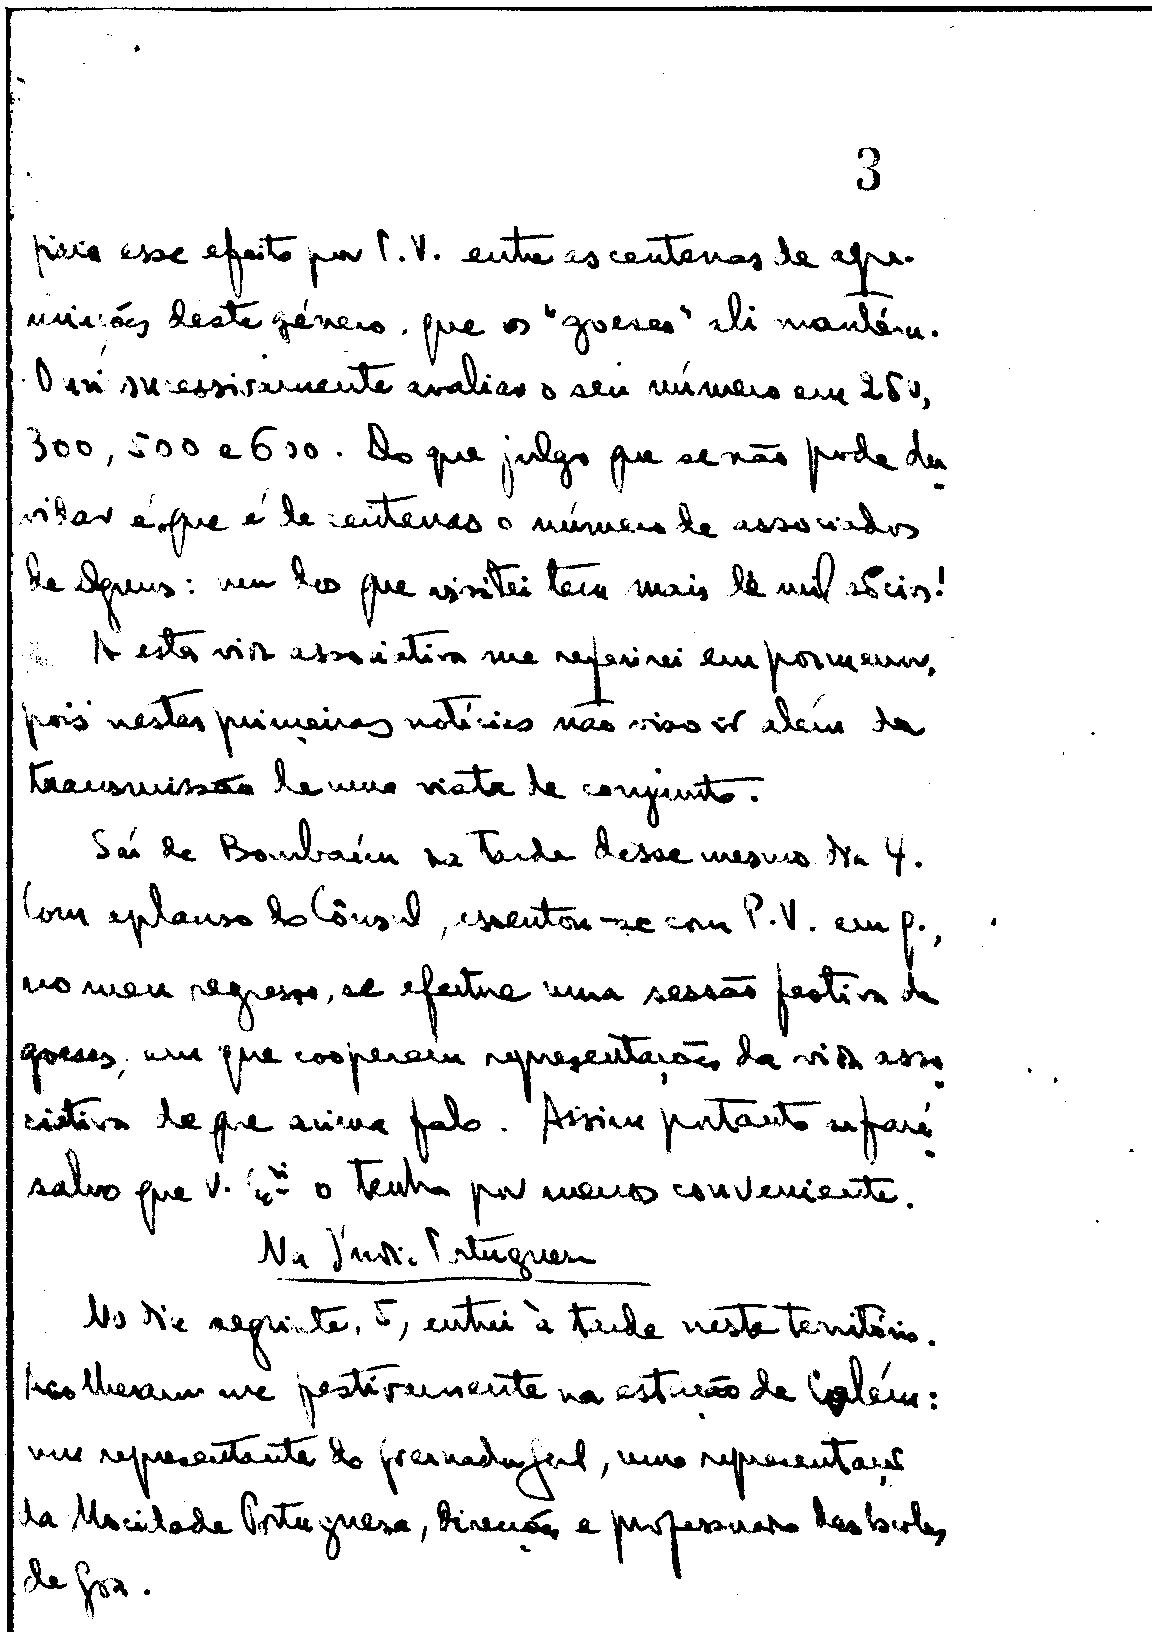 3
para esse efeito por P.V. entre as centenas de agre-
miações deste género, que os "goeses" ali mantêm.
Ouvi sucessivamente avaliar o seu número em 250,
300, 500 e 600. Do que julgo que se não pode du-
vidar é que é de centenas o número de associados
de alguns: um dos que visitei tem mais de mil sócios!
A esta vida associativa me referirei em pormenor,
pois nestas primeiras notícias não viso ir além da
transmissão de uma vista de conjunto.
Saí de Bombaím na tarde desse mesmo dia 4.
Com aplauso do Cônsul, assentou-se com P.V. em q.,
no meu regresso, se efectue uma sessão festiva de
goeses, em que cooperem representações da vida asso-
ciativa de que acima falo. Assim portanto se fará,
salvo que V. Exª o tenha por menos conveniente.
Na Índia Portuguesa
No dia seguinte, 5, entrei à tarde neste território.
Acolheram-me festivamente na estação de Colém:
um representante do Governador Geral, uma representação
da Mocidade Portuguesa, direcção e professorado das Escolas
de Goa.